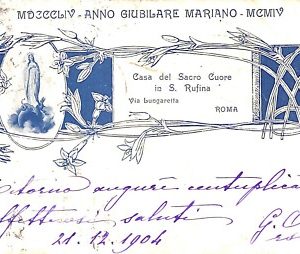 MDCCCLIV - ANNO GIUBILARE MARIANO - MCMIV
Casa del Sacro Cuore
in S. Rufina
Via Lungaretta
ROMA
auguri centuplica
saluti G.
21.12.1904